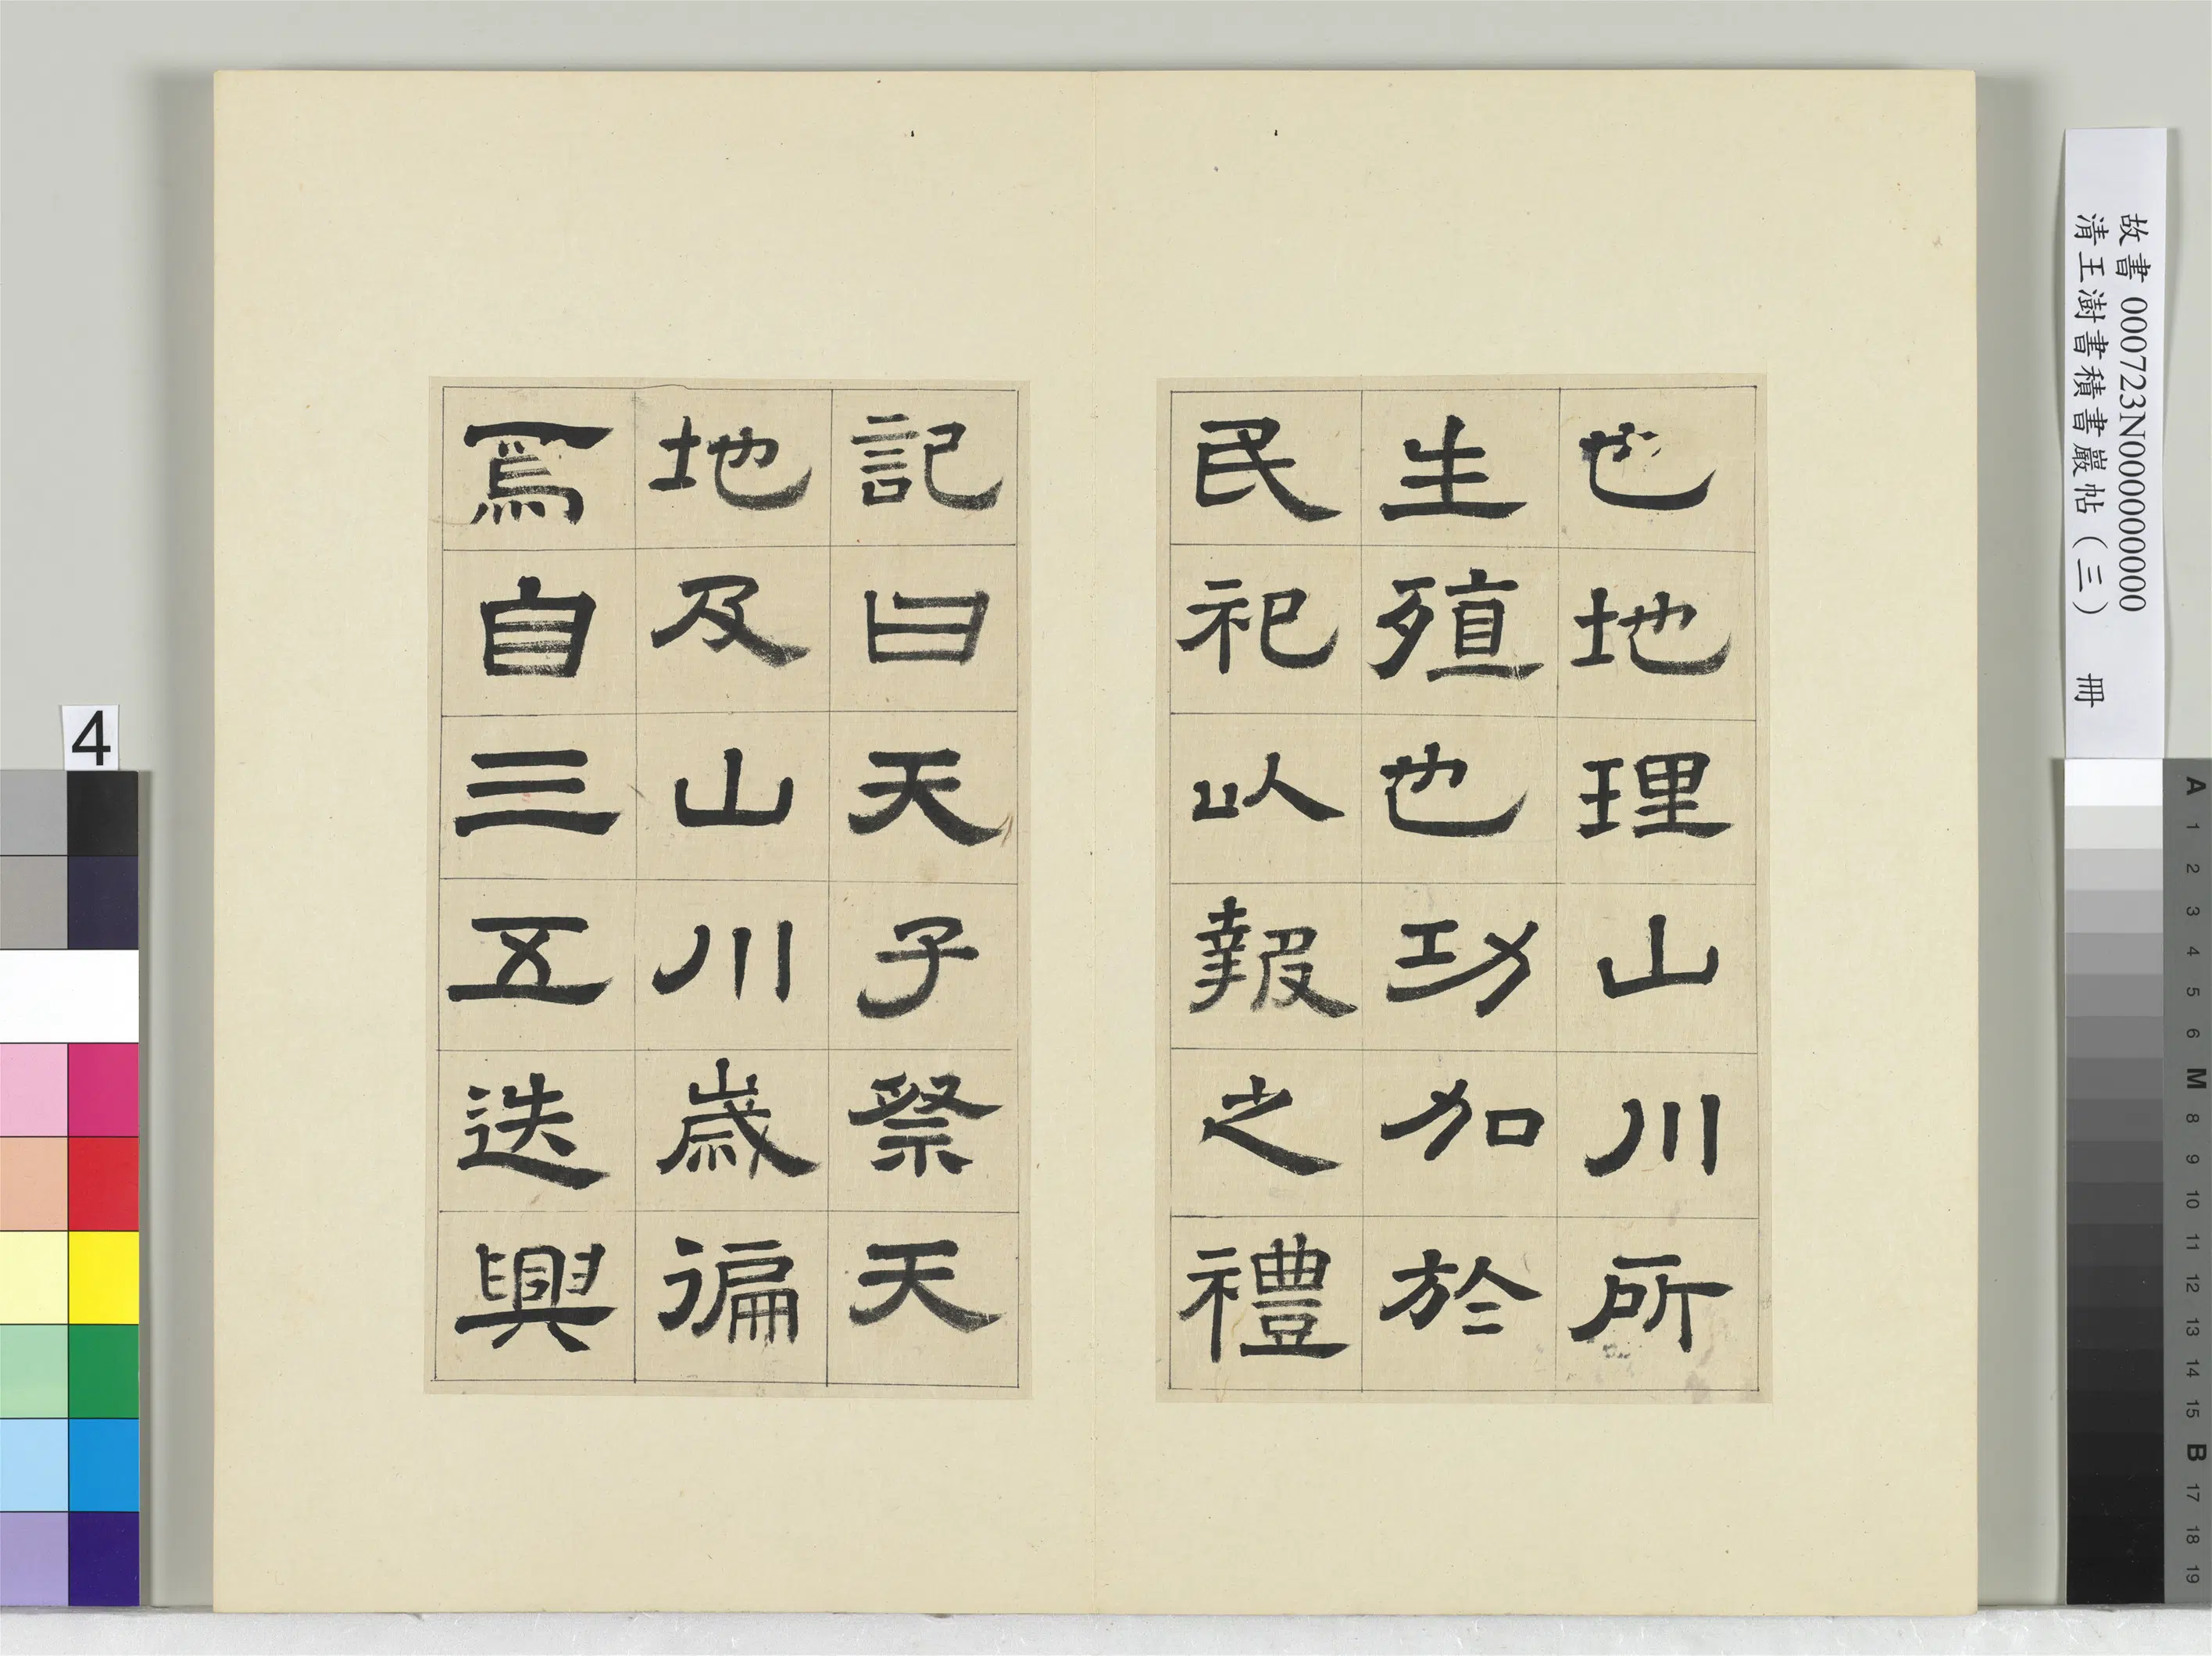 也地理山川所
生殖也功加於
民祀以報之禮
記曰天子祭天
地及山川歲徧
焉自三五迭興
故書 000723N000000000
清王澍書積書巖帖（三） 冊
4
A 1 2 3 4 5 6 M 8 9 10 11 12 13 14 15 B 17 18 19